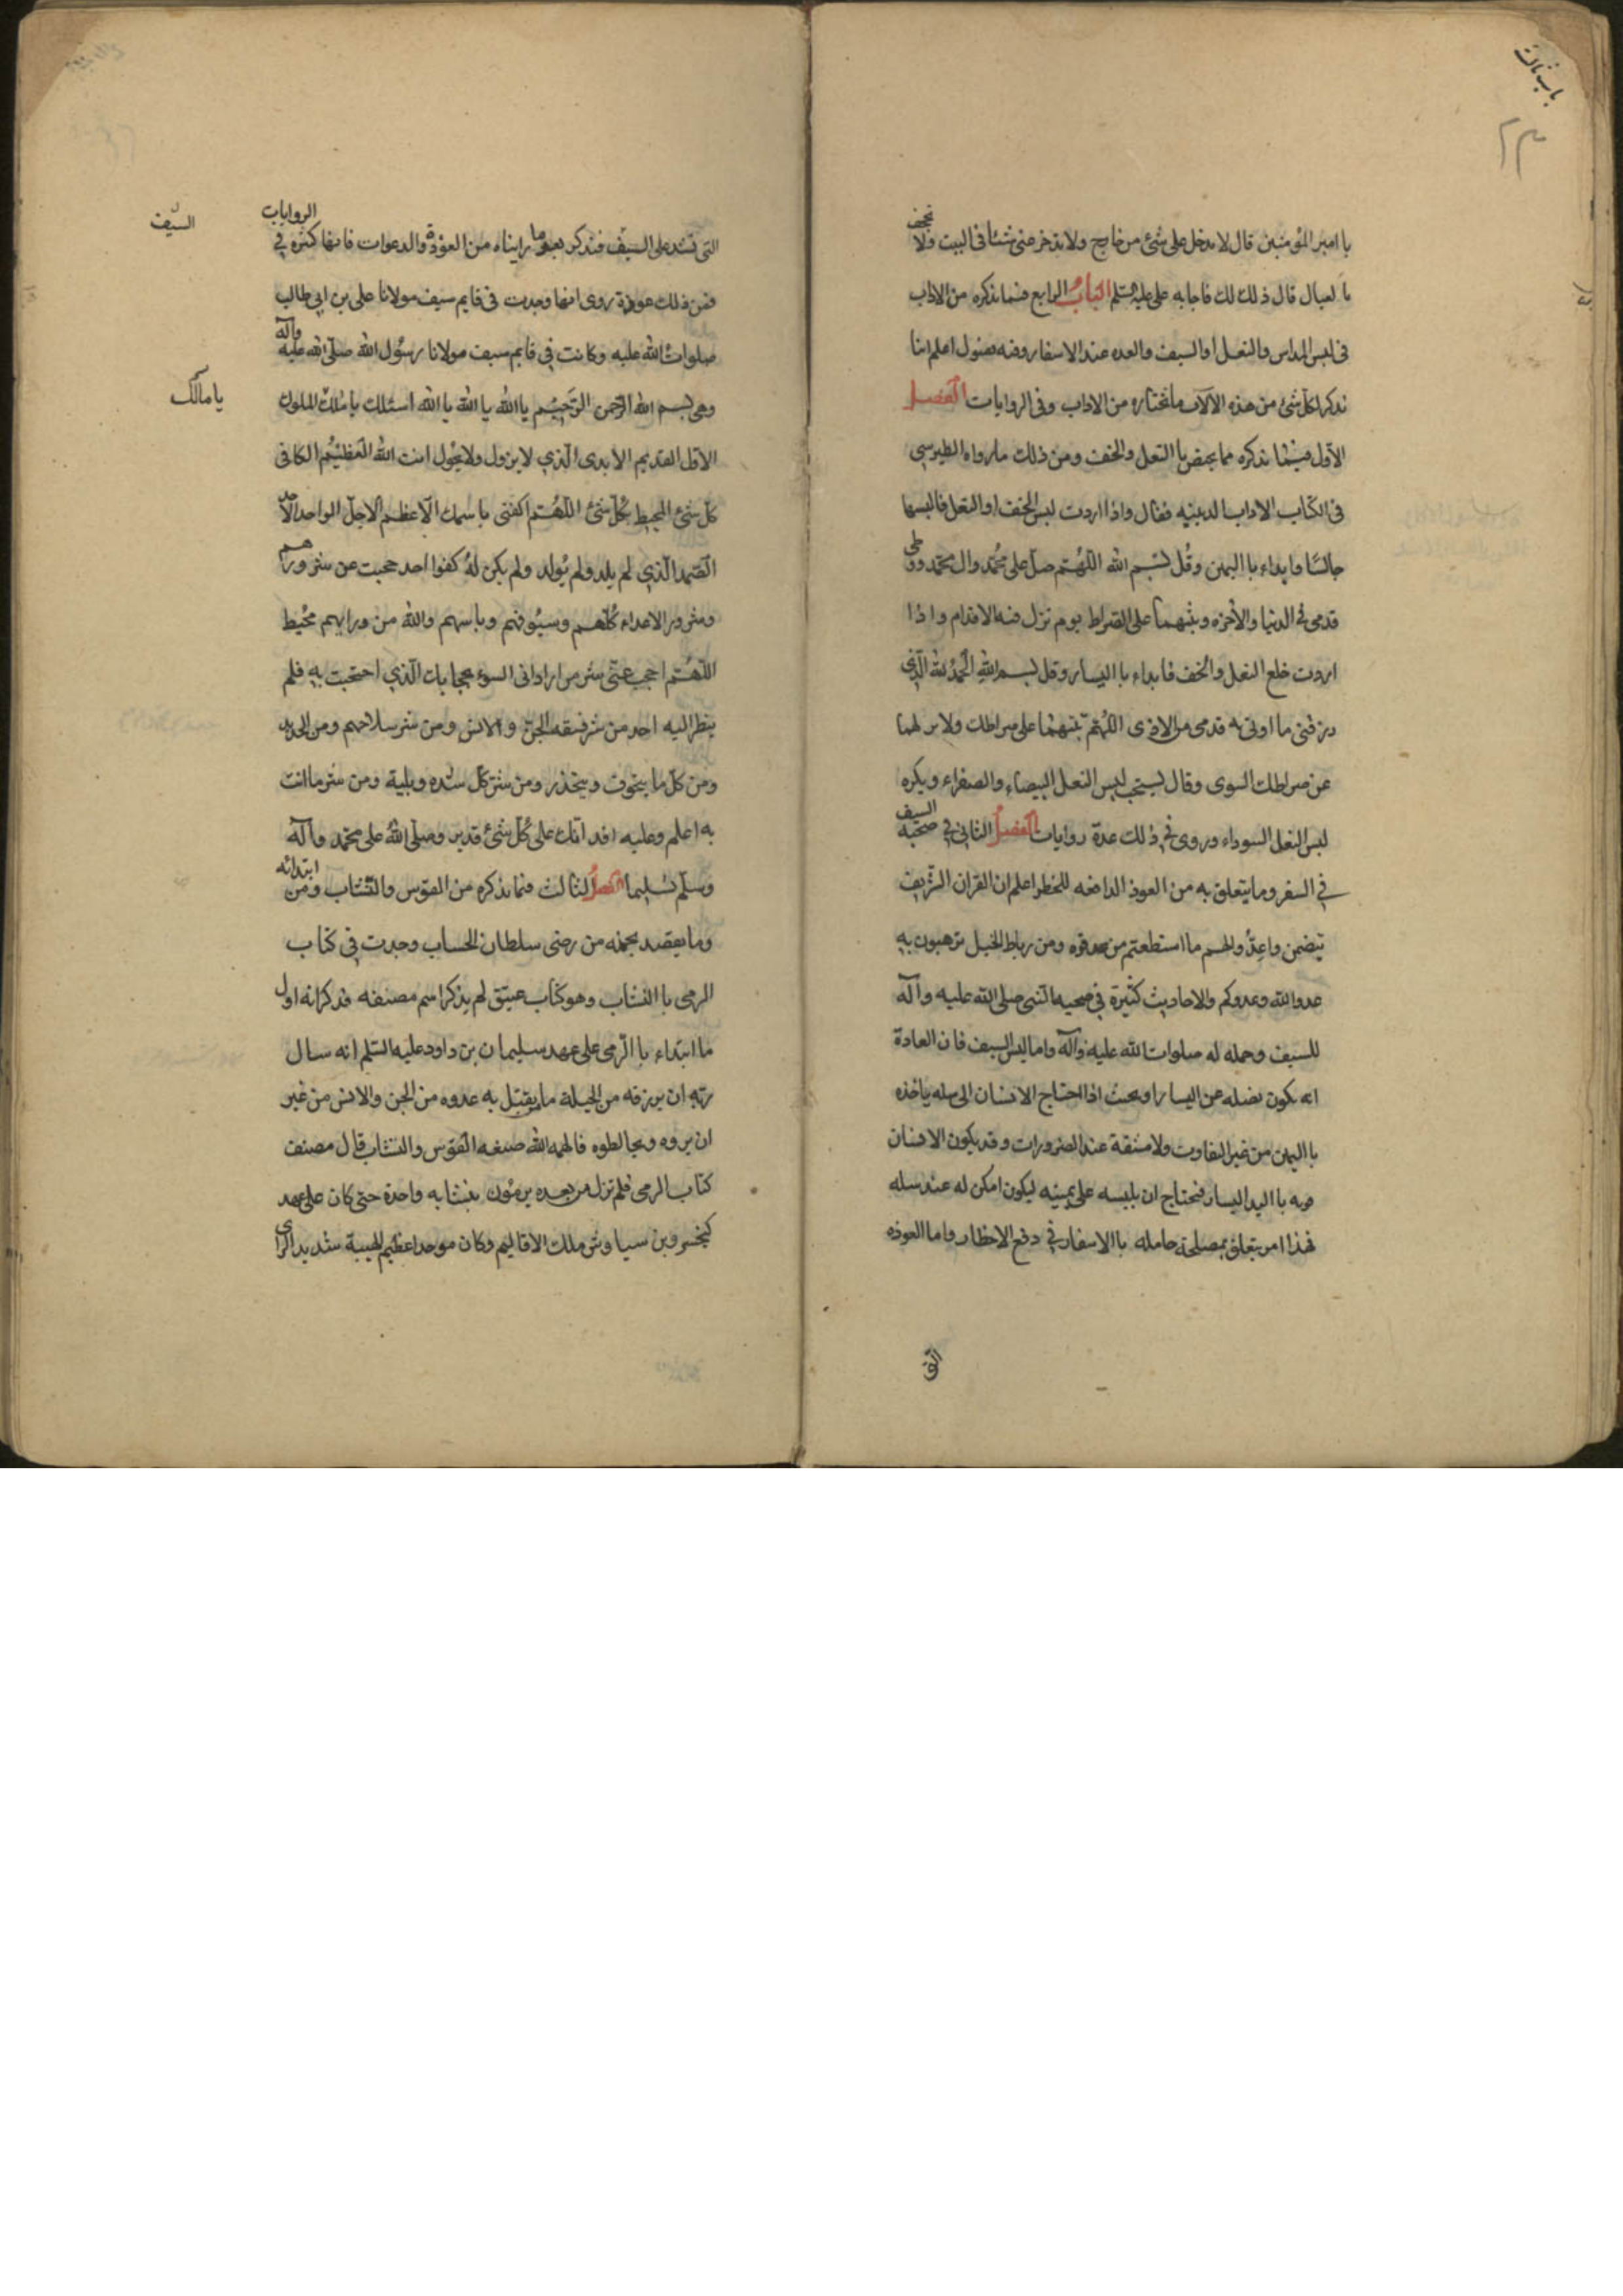 باب ثالث
٢٣
يا امير المؤمنين قال لا تدخل على شئ من خارج ولا تدخر عنى شئا فى البيت ولا تجحف
با لعيال قال ذلك لك فاجابه على عليه السلم الباب الرابع فيما نذكره من الاداب
فى لبس المداس والنعل او السيف والعده عند الاسفار وفيه فصول اعلم اننا
نذكر لكل شئ من هذه الالات ما نختاره من الاداب وفى الروايات الفصل
الاول فيما نذكره مما يختص باالنعل والخف ومن ذلك ما رواه الطبرسى
فى الكتاب الاداب الدينيه فقال واذا اردت لبس الخف او النعل فالبسها
جالسًا وابداء باليمين وقُل بسم الله اللهُم صل على محُمد وال محمد ووطى
قدمى فى الدنيا والأخره وثبتهما على الصراط يوم تزل فيه الاقدام واذا
اردت خلع النعل والخف فابداء باليسار وقل بسم الله الحمدُ لله الذى
رزقنى ما اوقى به قدمى من الاذى اللهُم ثبتهما على صراطك ولا تزلهما
عن صراطك السوى وقال يستحب لبس النعل البيضاء والصفراء ويكره
لبس النعل السوداء وروى فى ذلك عدة روايات الفصل الثانى فى صحبه السيف
فى السفر وما يتعلق به من العوذ الدافعه للخطر اعلم ان القران الشريف
تيضمن واعدُوالهم ما استطعتم من قوه ومن رباط الخيل ترهبون به
عدو الله وعدوكم والاحاديث كثيرة فى صحبه النبى صلى الله عليه وآله
للسيف وحمله له صلوات الله عليه وآله واما لبس السيف فان العادة
انه يكون نصله عن اليسار او بحيث اذا احتاج الانسان الى سله ياخذه
بااليمين من غير التفاوت ولا مشقة عند الضرورات وقد يكون الانسان
قويه بااليد اليسار فيحتاج ان يلبسه على يمينه ليكون امكن له عند سله
فهذا امر يتعلق بمصلحة حامله باالاسفار فى دفع الاخطار واما العوذه
التى
السيف
التى تشد على السيف فنذكر بعض ما رايناه من العوذة والدعوات فانها كثره فى الروايات
فمن ذلك عوذة روى انها وجدت فى قايم سيف مولانا على بن ابى طالب
صلوات الله عليه وكانت فى قايم سيف مولانا رسُول الله صلى الله عليه وآله
يا مالك
وهى بسم الله الرحمن الرحيم يا الله يا الله يا الله اسئلك يا ملك الملوك
الاول القديم الابدى الذى لا يزول ولا يحُول انت الله العظيم الكافى
كل شئ المحيط بكُل شئ اللهُم اكفنى باسمك الاعظم الاجل الواحد الاحد
الصمد الذى لم يلد ولم يُولد ولم يكن لهُ كفوا احد حجبت عن شرورهم
وشرور الاعداء كُلهم وسيُوفهم وباسهم والله من ورايهم محُيط
اللهُم احجب عنى شر من ارادنى السوء بحجابك الذى احتجبت به فلم
ينظر اليه احد من شر فسقه الجن والانس ومن شر سلاحهم ومن الحديد
ومن كل ما يتخوف ويتحذر ومن شر كل شده وبلية ومن شر ما انت
به اعلم وعليه اقدر انك على كُل شئ قدير وصلى الله على محمد وآله
وسلم تسليما الفصل الثالث فيما نذكره من القوس والنشاب ومن ابتدائه
وما يقصد بحمله من رضى سلطان الحساب وجدت فى كتاب
الرمى باالنشاب وهو كتاب عتيق لم يذكر اسم مصنفه فذكر انه اول
ما ابتداء باالرمى على عهد سليمان بن داود عليه السلم انه سال
ربه ان يرزقه من الحيلة ما يقتل به عدوه من الجن والانس من غير
ان يروه ويخالطوه فالهمه الله صنعه القوس والنشاب قال مصنف
كتاب الرمى فلم تزل من بعده يرمُون بنشابه واحدة حتى كان على عهد
كيخسرو بن سياوش ملك الاقاليم وكان موحدا عظيم الهيبة شديد الراى